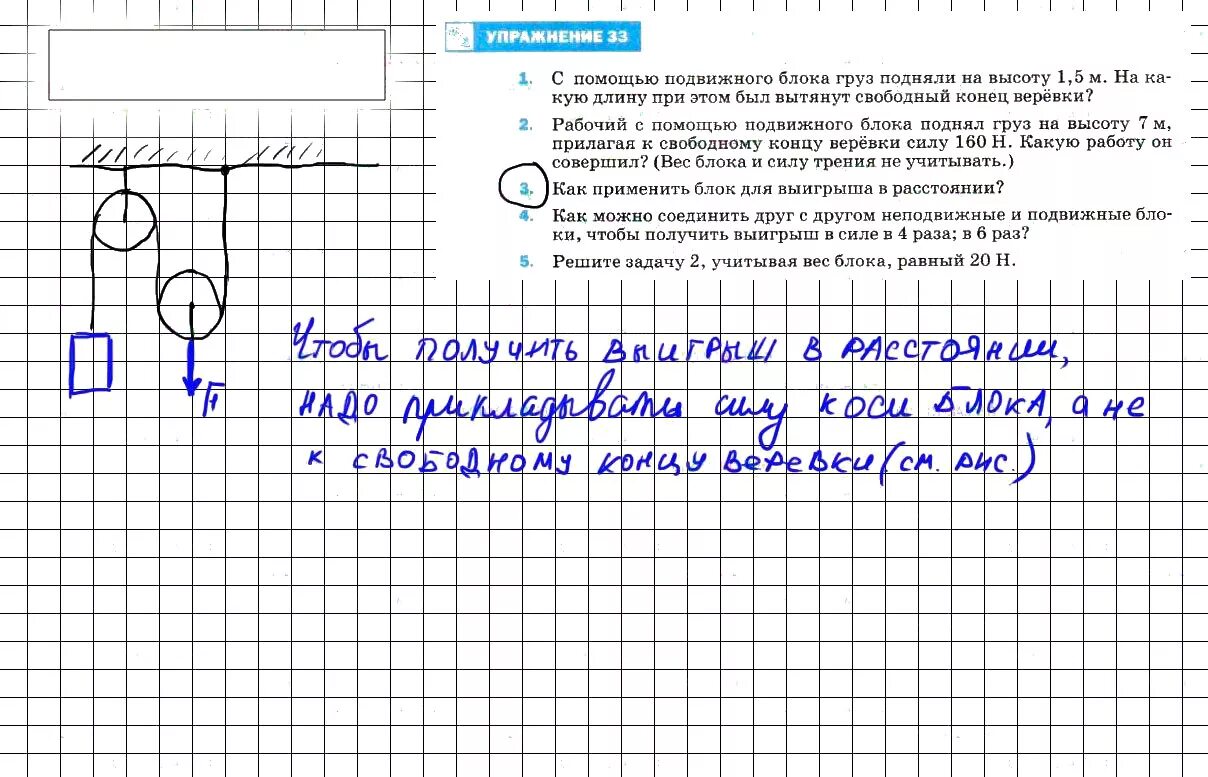 УПРАЖНЕНИЕ 33
1. С помощью подвижного блока груз подняли на высоту 1,5 м. На ка-
кую длину при этом был вытянут свободный конец верёвки?
2. Рабочий с помощью подвижного блока поднял груз на высоту 7 м,
прилагая к свободному концу верёвки силу 160 Н. Какую работу он
совершил? (Вес блока и силу трения не учитывать.)
3. Как применить блок для выигрыша в расстоянии?
4. Как можно соединить друг с другом неподвижные и подвижные бло-
ки, чтобы получить выигрыш в силе в 4 раза; в 6 раз?
5. Решите задачу 2, учитывая вес блока, равный 20 Н.
Чтобы получить выигрыш в расстоянии,
надо прикладывать силу к оси блока, а не
к свободному концу веревки (см. рис.)
F